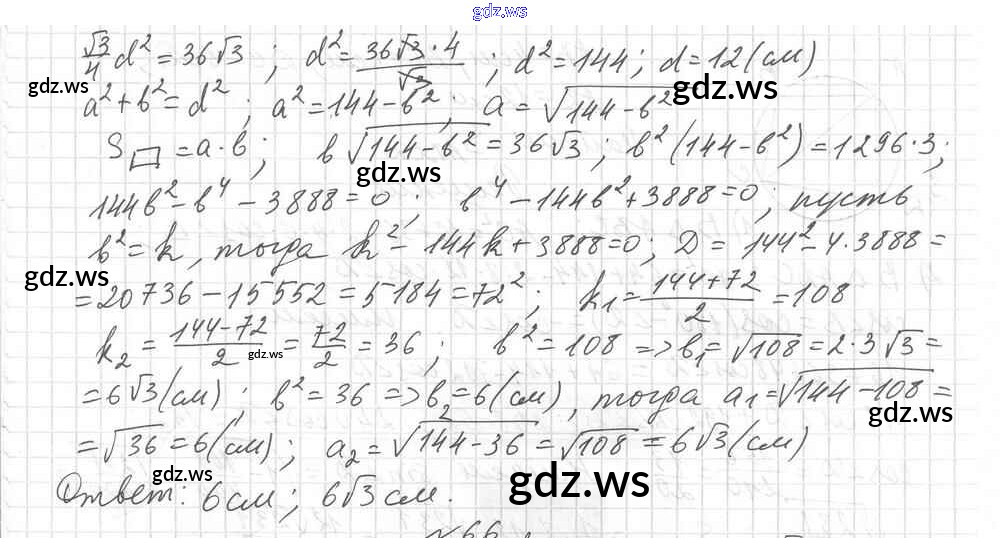 gdz.ws
√3/4 d² = 36√3 ; d² = 36√3·4/√3 ; d² = 144 ; d = 12 (см)
gdz.ws gdz.ws
a² + b² = d² ; a² = 144 - b² ; a = √(144 - b²)
S▱ = a·b ; b√(144 - b²) = 36√3 ; b²(144 - b²) = 1296·3 ;
gdz.ws
144b² - b⁴ - 3888 = 0 ; b⁴ - 144b² + 3888 = 0 ; пусть
b² = k, тогда k² - 144k + 3888 = 0 ; D = 144² - 4·3888 =
gdz.ws gdz.ws
= 20736 - 15552 = 5184 = 72² ; k₁ = (144+72)/2 = 108
k₂ = (144-72)/2 = 72/2 = 36 ; b² = 108 => b₁ = √108 = 2·3√3 =
gdz.ws
= 6√3 (см) ; b² = 36 => b₂ = 6 (см), тогда a₁ = √(144 - 108) =
gdz.ws
= √36 = 6 (см) ; a₂ = √(144 - 36) = √108 = 6√3 (см)
gdz.ws gdz.ws
Ответ: 6 см ; 6√3 см.
№66